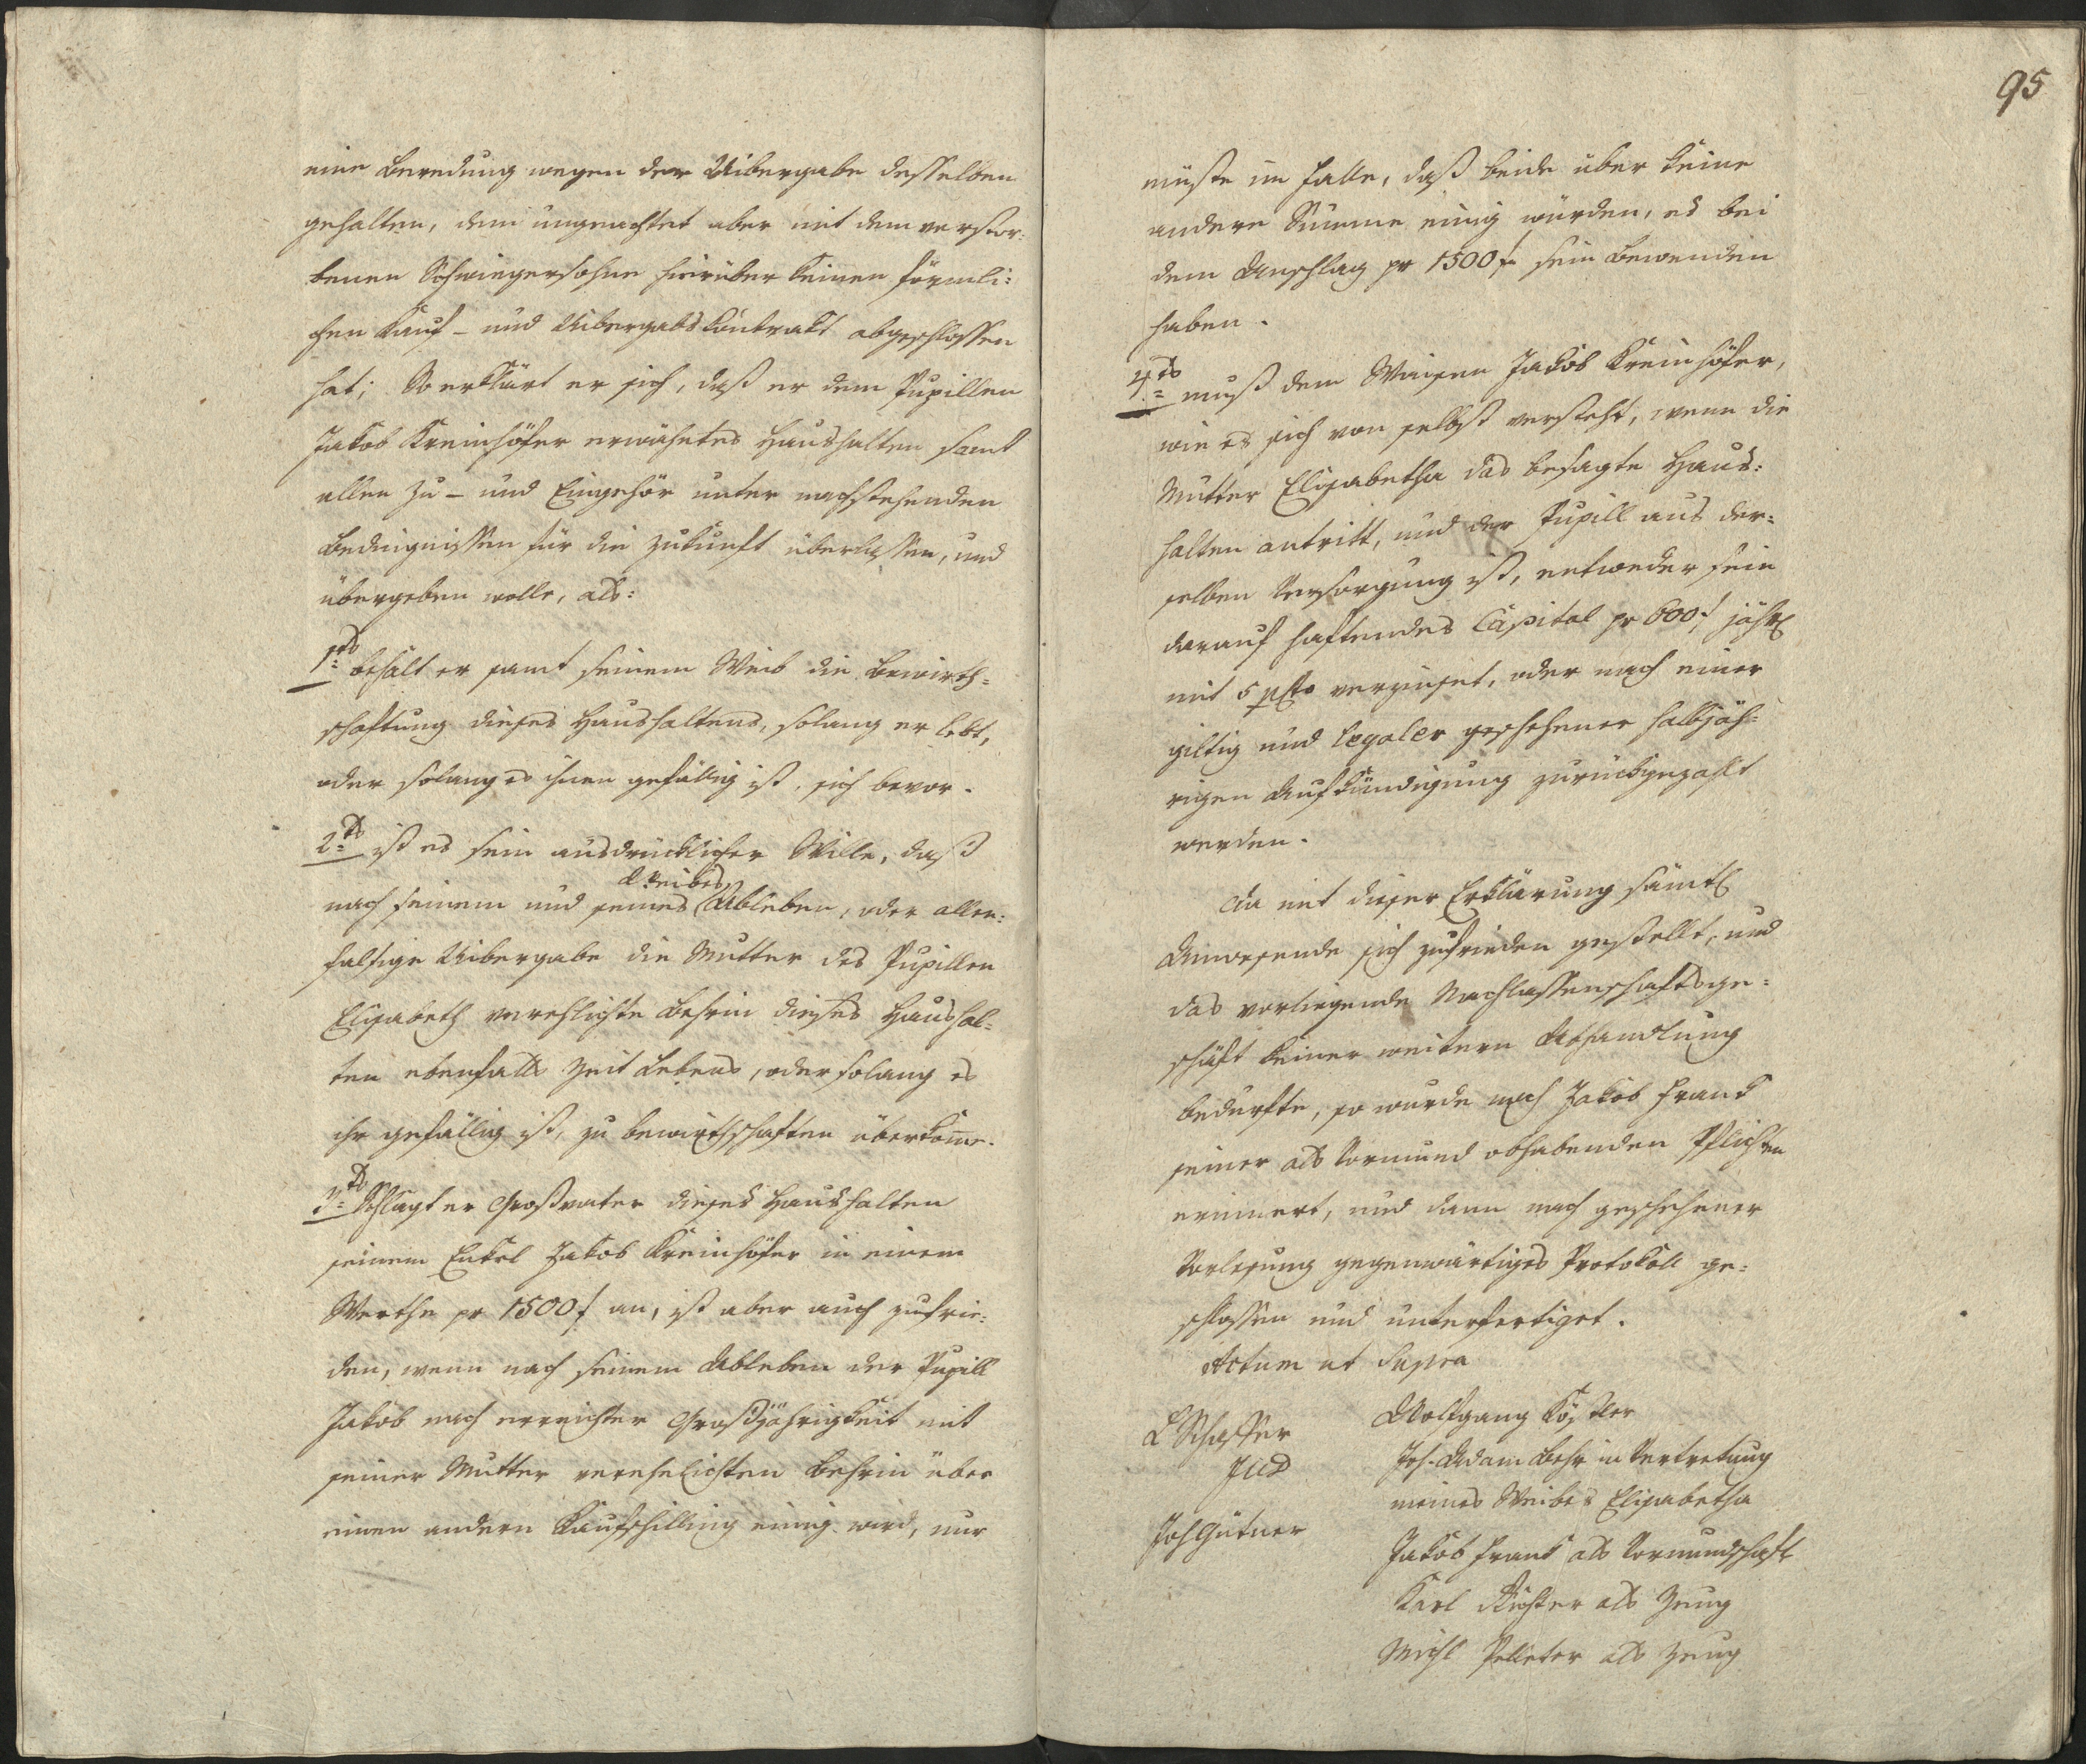 eine Beredung wegen der Uibergabe desselben
gehalten, dem ungeachtet aber mit dem verstor=
benen Schwiegersohne hierüber keinen förmli=
chen Kauf- und Uibergabskontrakt abgeschlossen
hat; So erklärt er sich, daß er dem Pupillen
Jakob Kreinhöfer erwähntes Haushalten samt
allen Zu- und Eingehör unter nachstehenden
Bedingnissen für die Zukunft überlassen, und
übergeben wolle, als:
1tns behält er samt seinem Weib die Bewirth=
schaftung dieses Haushaltens, solang er lebt,
oder solang es ihnen gefällig ist, sich bevor.
2tns ist es sein ausdrücklicher Wille, daß
Weibes
nach seinem und seines Ableben, oder allen=
falsige Uibergabe die Mutter des Pupillen
Elisabeth verehlichte Behrin dieses Haushal=
ten ebenfalls Zeit Lebens, oder solang es
ihr gefällig ist, zu bewirthschaften überkome.
3tns Schlagt er Großvater dieses Haushalten
seinem Enkel Jakob Kreinhöfer in einem
Werthe pr 1500 f an, ist aber auch zufrie=
den, wenn nach seinem Ableben der Pupill
Jakob nach erreichter Großjährigkeit mit
seiner Mutter verehelichten Behrin über
einen andern Kaufschilling einig wird, nur
95
müste im Falle, daß beide über keine
andere Summe einig würden, es bei
dem Anschlag pr 1500 f sein Bewenden
haben.
4tns muß dem Waisen Jakob Kreinhöfer,
wie es sich von selbst versteht, wenn die
Mutter Elisabetha das besagte Haus=
halten antritt, und der Pupill aus der=
selben Versorgung ist, entweder sein
darauf haftendes Capital pr 600 f jährl
mit 5 pCto verzinset, oder nach einer
giltig und legaler geschehener halbjäh=
rigen Aufkündigung zurückgezahlt
werden.
Da mit dieser Erklärung sämtl
Anwesende sich zufrieden gestellt, und
das vorliegende Nachlassenschaftsge=
schäft keiner weitern Abhandlung
bedurfte, so wurde noch Jakob Frank
seiner als Vormund obhabenden Pflichten
erinnert, und dann nach geschehener
Vorlesung gegenwärtiges Protokoll ge=
schlossen und unterfertiget.
Actum ut Supra
Wolfgang Kößler
L Schaffer
Joh. Adam Behr in Vertretung
Jud
meines Weibes Elisabetha
Joh Gütner
Jakob Frank als Vormundschaft
Karl Richter als Zeug
Michl Pelleter als Zeug